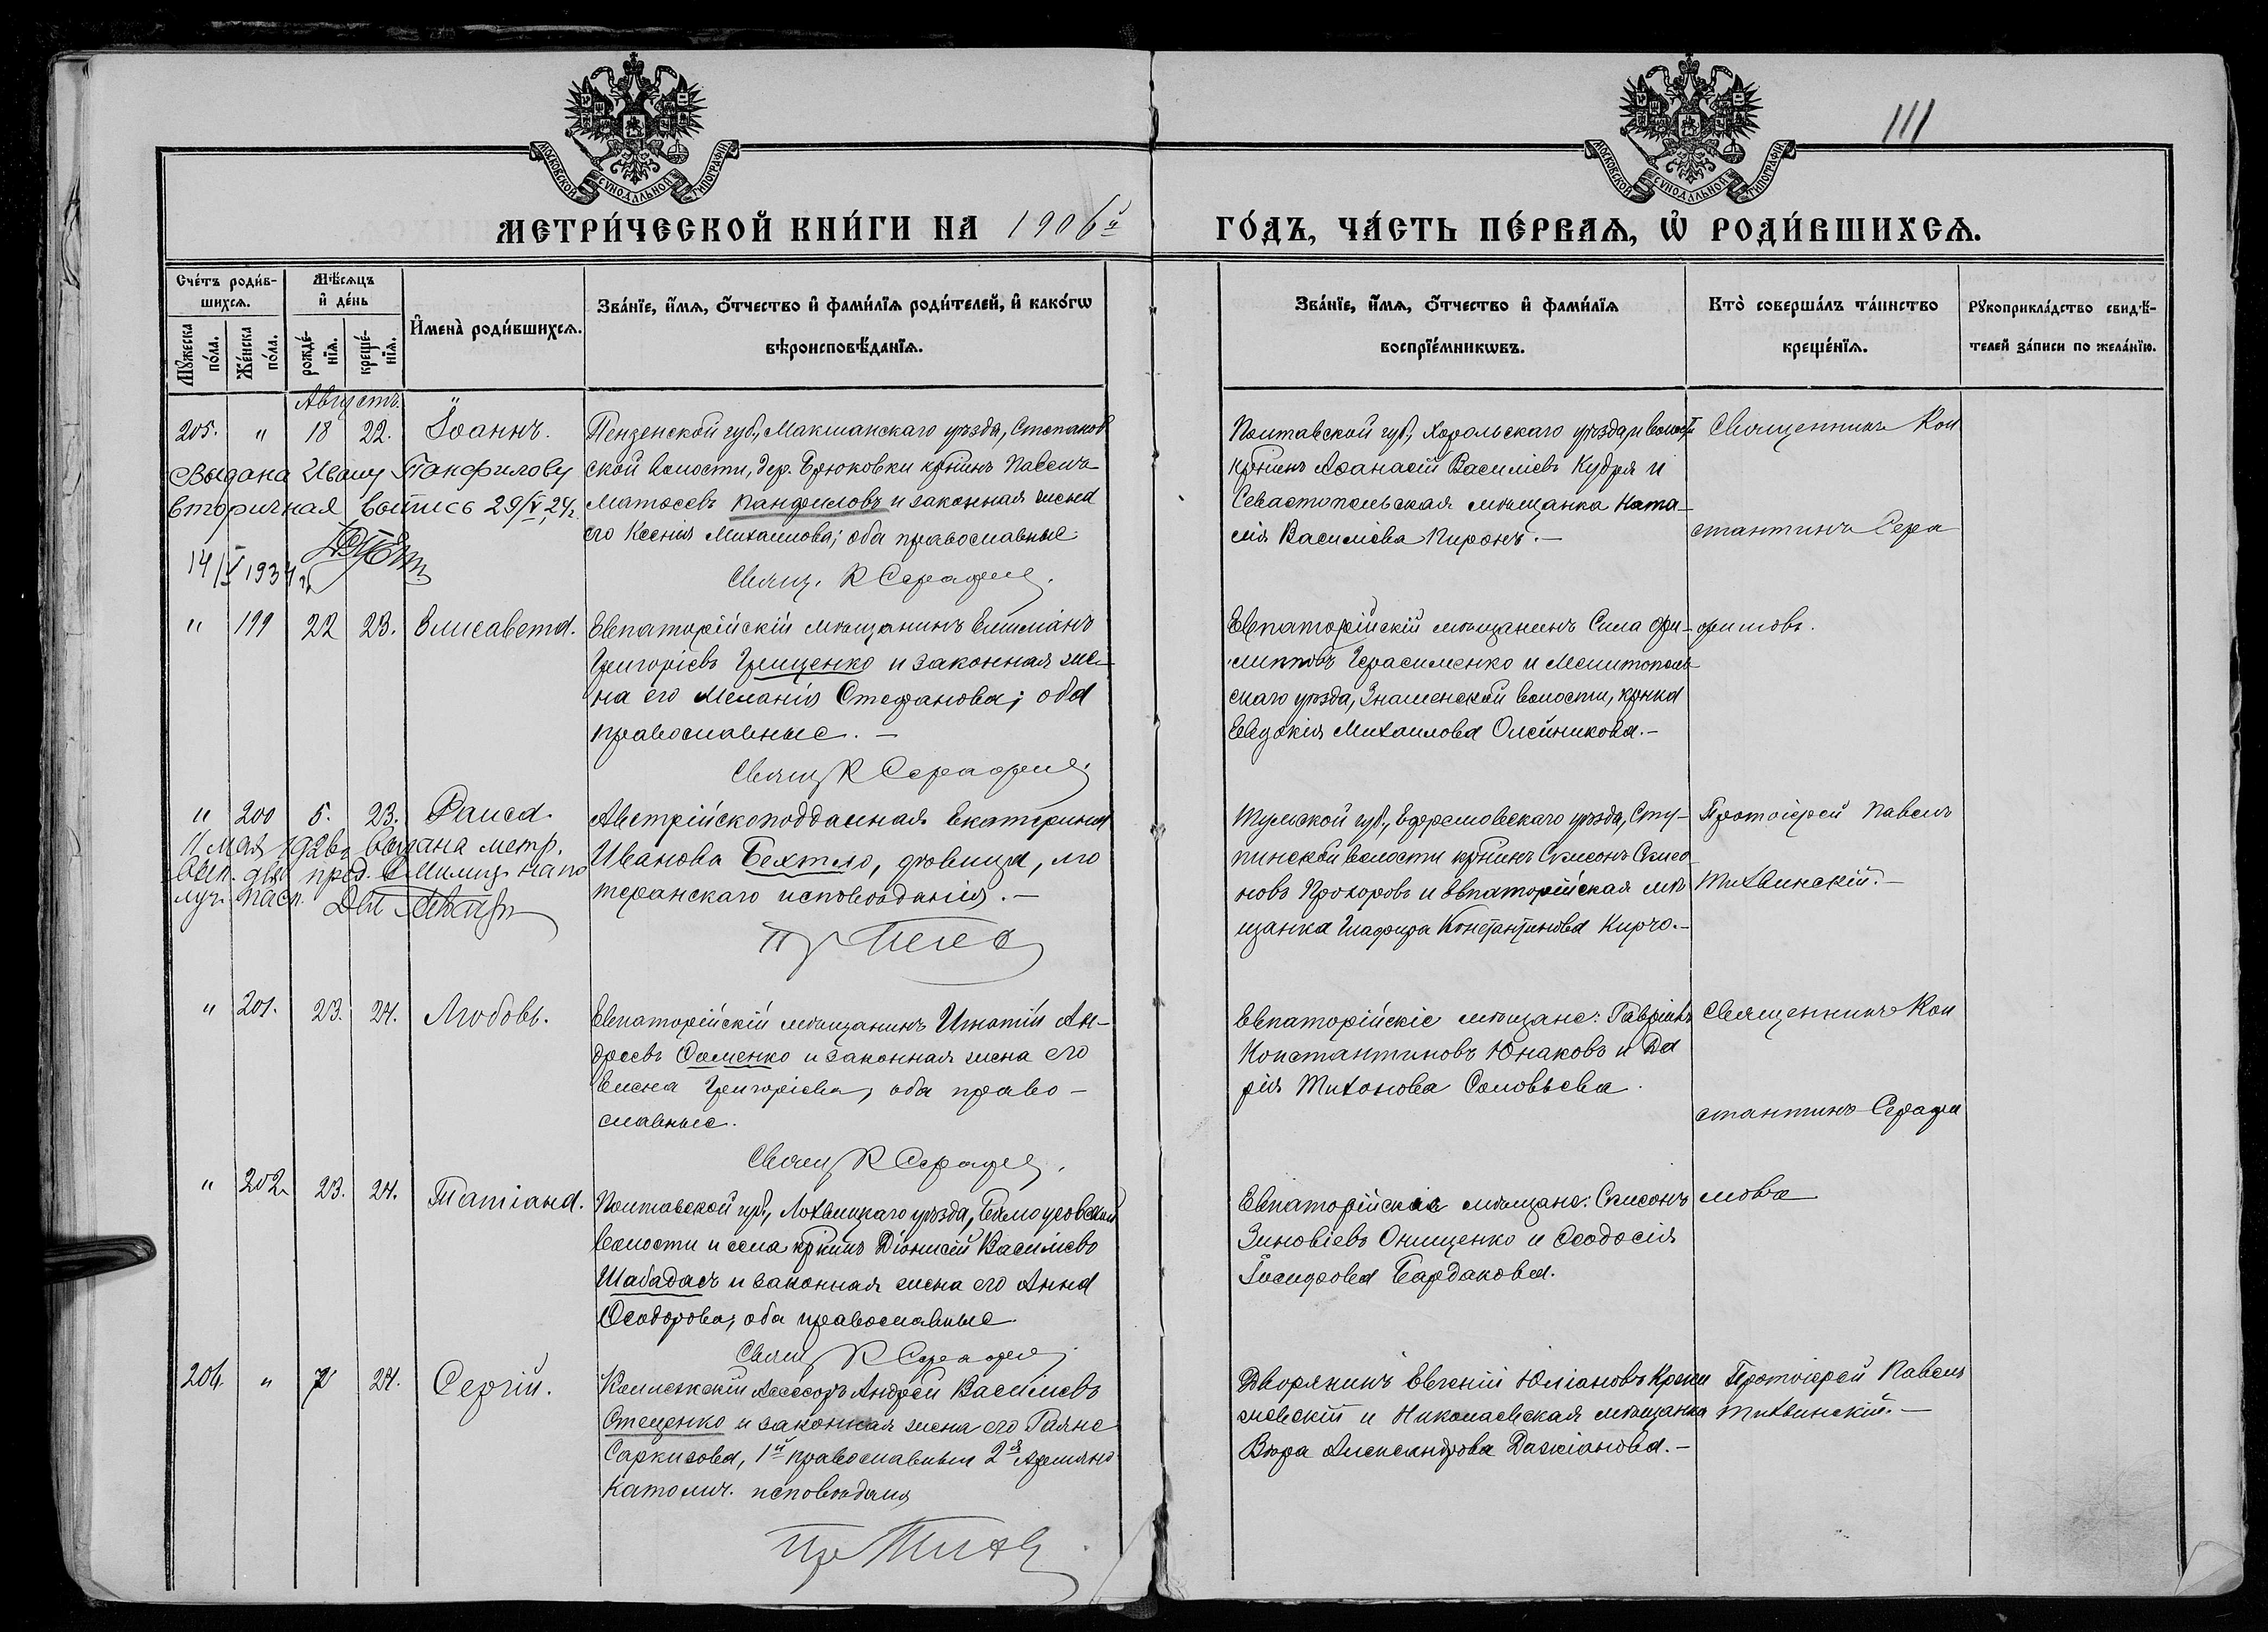 111
МОСКОВСКОЙ СѴНОДАЛЬНОЙ ТИПОГРАФІИ
МОСКОВСКОЙ СѴНОДАЛЬНОЙ ТИПОГРАФІИ
МЕТРИ́ЧЕСКОЙ КНИ́ГИ НА 1906й ГО́ДЪ, ЧА́СТЬ ПЕ́РВАѦ, Ѡ҆ РОДИ́ВШИХСѦ.
Сче́тъ роди́в-
шихсѧ.
Мꙋжеска по́ла.
Же́нска по́ла.
Мѣ́сѧцъ
и҆ де́нь
рожде́-
нїѧ.
креще́-
нїѧ.
И҆мена̀ роди́вшихсѧ.
Зва́нїе, и҆́мѧ, ѻ҆́тчество и҆ фами́лїѧ роди́телей, и҆ како́гѡ
вѣроисповѣ́данїѧ.
Зва́нїе, и҆́мѧ, ѻ҆́тчество и҆ фами́лїѧ
воспрїе́мникѡвъ.
Кто̀ соверша́лъ та́инство
креще́нїѧ.
Рꙋкоприкла́дство свидѣ́-
телей за́писи по жела́нїю.
Августъ.
205. " 18 22. Іоаннъ.
Пензенской губ., Мокшанскаго уѣзда, Степанов
ской волости, дер. Брюковки кр̃нинъ Павелъ
Матѳеевъ Панфиловъ и законная жена
его Ксенія Михаилова; оба православные
Свящ. К Серафи
Полтавской губ., Хорольскаго уѣзда и волости
кр̃нинъ Аѳанасій Василіевъ Кудря и
Севастопольская мѣщанка Ната-
лія Василіева Пиронъ.-
Священникъ Кон
стантинъ Сера
Выдана Ивану Панфилову
вторичная выпись 29/V 24г.
14/V 1934 г.
" 199 22 23. Елисавета.
Евпаторійскій мѣщанинъ Емиліанъ
Григоріевъ Грищенко и законная же-
на его Меланія Стефанова; оба
православные. -
Свящ К Серафи
Евпаторійскій мѣщанинъ Сила Фи-
липповъ Герасименко и Мелитополь-
скаго уѣзда, Знаменской волости, кр̃нка
Евдокія Михаилова Олейникова.-
фимовъ.
" 200 5. 23. Раиса.
Австрійскоподданная Екатерина
Иванова Бехтло, дѣвица, лю
теранскаго исповѣданія. -
Тульской губ., Ефремовскаго уѣзда, Сту-
пинской волости кр̃нинъ Симеонъ Симео
новъ Прохоровъ и Евпаторійская мѣ
щанка Глафира Константинова Кирчо.-
Протоіерей Павелъ
Тихвинскій.-
11 мая 192 г. выдана метр.
вып. для пред. в Милиц на по
луч. пасп.
" 201. 23. 24. Любовь.
Евпаторійскій мѣщанинъ Игнатій Ан-
дреевъ Ѳоменко и законная жена его
Елена Григоріева, оба право-
славные.
Свящ К Серафи
Евпаторійскіе мѣщане: Гавріилъ
Константиновъ Юнаковъ и Да
рія Тихонова Соловьева.
Священникъ Кон
стантинъ Серафи
" 202. 23. 24. Татіана.
Полтавской губ., Лохвицкаго уѣзда, Бѣлоусовской
волости и села кр̃нинъ Діонисій Василіевъ
Шабадасъ и законная жена его Анна
Ѳеодорова, оба православные
Свящ К Серафи
Евпаторійскіе мѣщане: Симеонъ
Зиновіевъ Онищенко и Ѳеодосія
Іосифова Бардакова.
мовъ
206. " 7 24. Сергій.
Коллежскій Ассесоръ Андрей Василіевъ
Стеценко и законная жена его Гаяне
Саркизова, 1й православный 2я Армяно
католич. исповѣданія
Дворянинъ Евгеній Юліановъ
и Николаевская мѣщанка
Вѣра Александрова Дажіанова.-
Протоіерей Павелъ
Тихвинскій.-